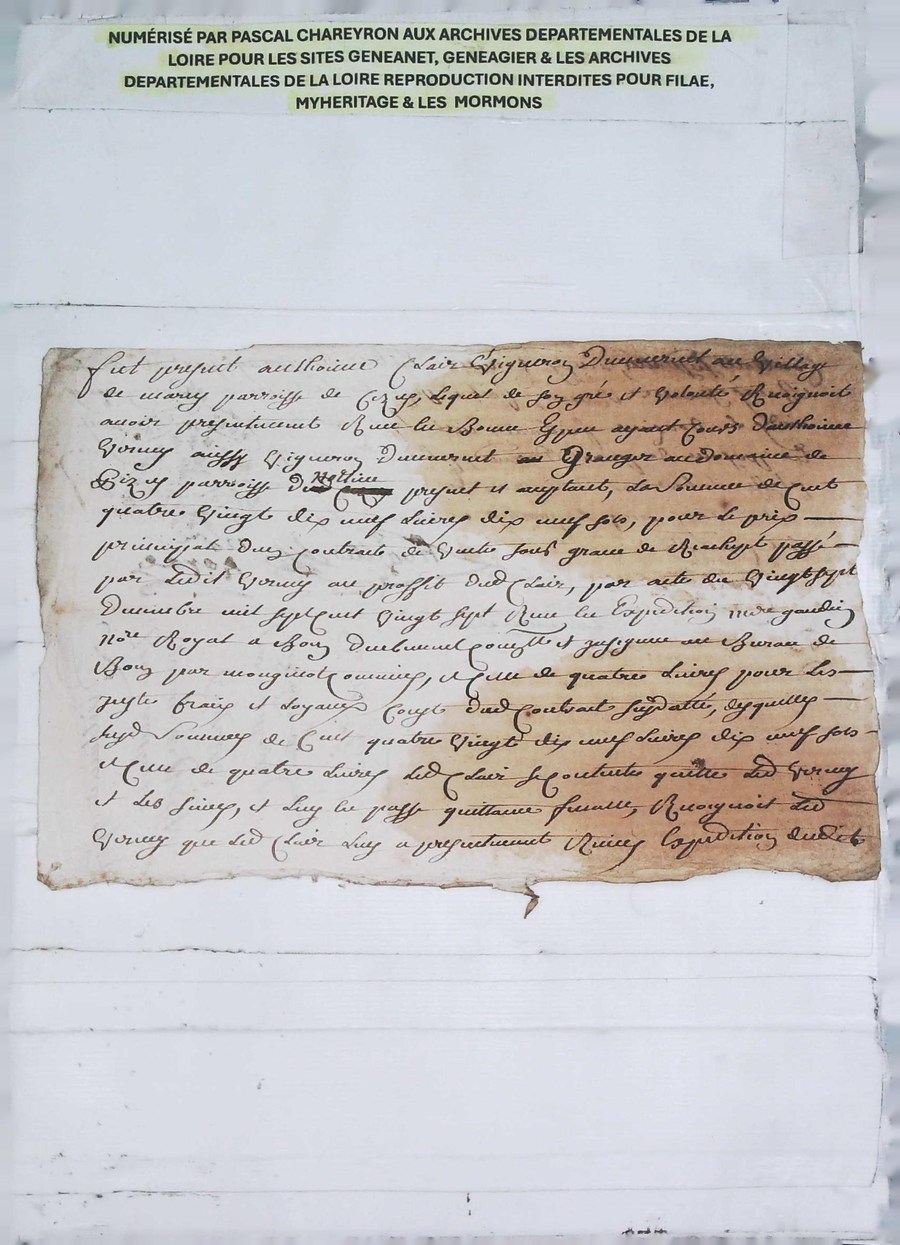 NUMÉRISÉ PAR PASCAL CHAREYRON AUX ARCHIVES DEPARTEMENTALES DE LA
LOIRE POUR LES SITES GENEANET, GENEAGIER & LES ARCHIVES
DEPARTEMENTALES DE LA LOIRE REPRODUCTION INTERDITES POUR FILAE,
MYHERITAGE & LES MORMONS
fut present anthoinne Clair Vigneron Demeurant au Village
de parroisse de lequel de son gré et Volonté Reconnoit
avoir presentement Receu en Bonne Espece ayant Cours d'anthoinne
Verney aussy Vigneron Demeurant Granger au domaine de
parroisse present et acceptant, La Somme de Cent
quatre Vingt dix neuf Livres dix neuf sols, pour le prix
principal d'un Contract de Vente sous grace de Reachept passé
par Ledit Verney au proffit dud Clair, par acte du Vingt sept
Decembre mil sept Cent Vingt sept Receu en Expedition me gaudin
nore Royal a Boen Duement Controllé et Insignué au Bureau de
Boen par Commis, et Celle de quatre Livres pour Les
frais et Loyaux Couts dud Contract susdatté, desquelles
susd Sommes de Cent quatre Vingt dix neuf Livres dix neuf sols
et Celle de quatre Livres Led Clair se Contente quitte Led Verney
et Les siens, et Luy en passe quittance finalle, Reconnoit Led
Verney que Led Clair Luy a presentement Remis Expedition dudit